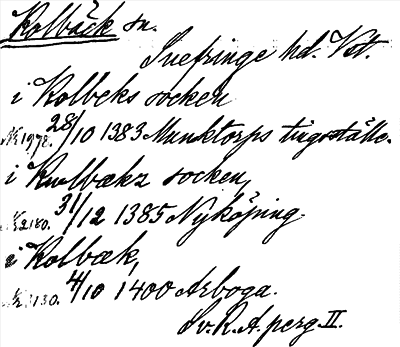 Kolbäck sn.
Snefringe hd. Vst.
i Kolbeks socken
Nr 1978. 28/10 1383 Munktorps tingsställe.
i Kwlbækz socken,
Nr 2180. 31/12 1385 Nyköping.
i Kolbæk,
Nr 3130. 4/10 1400 Arboga.
Sv. R. A. perg. II.